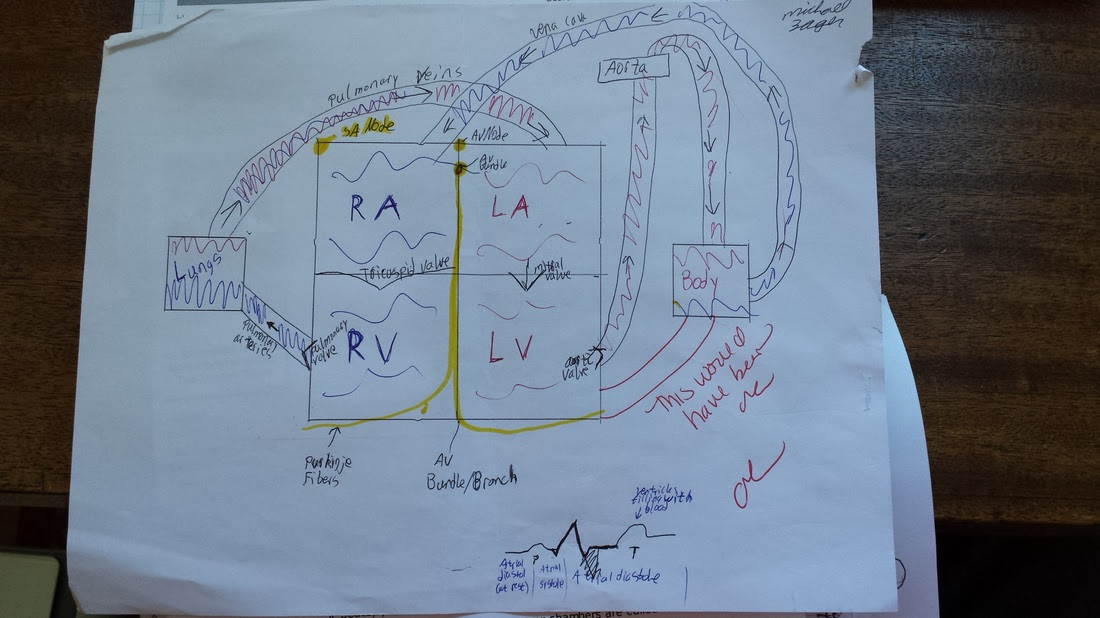 michael
Zager
vena cava
Pulmonary Veins
Aorta
SA Node
AV Node
AV
Bundle
RA
LA
Lungs
Tricuspid valve
mitral
valve
Body
Pulmonary
arteries
Pulmonary
valve
RV
LV
aortic
valve
This would
have been
ok
Purkinje
Fibers
AV
Bundle/Branch
ok
ventricles
filling with
blood
P
T
Atrial
diastol
(at rest)
Atrial
systole
Atrial diastole
chambers are called